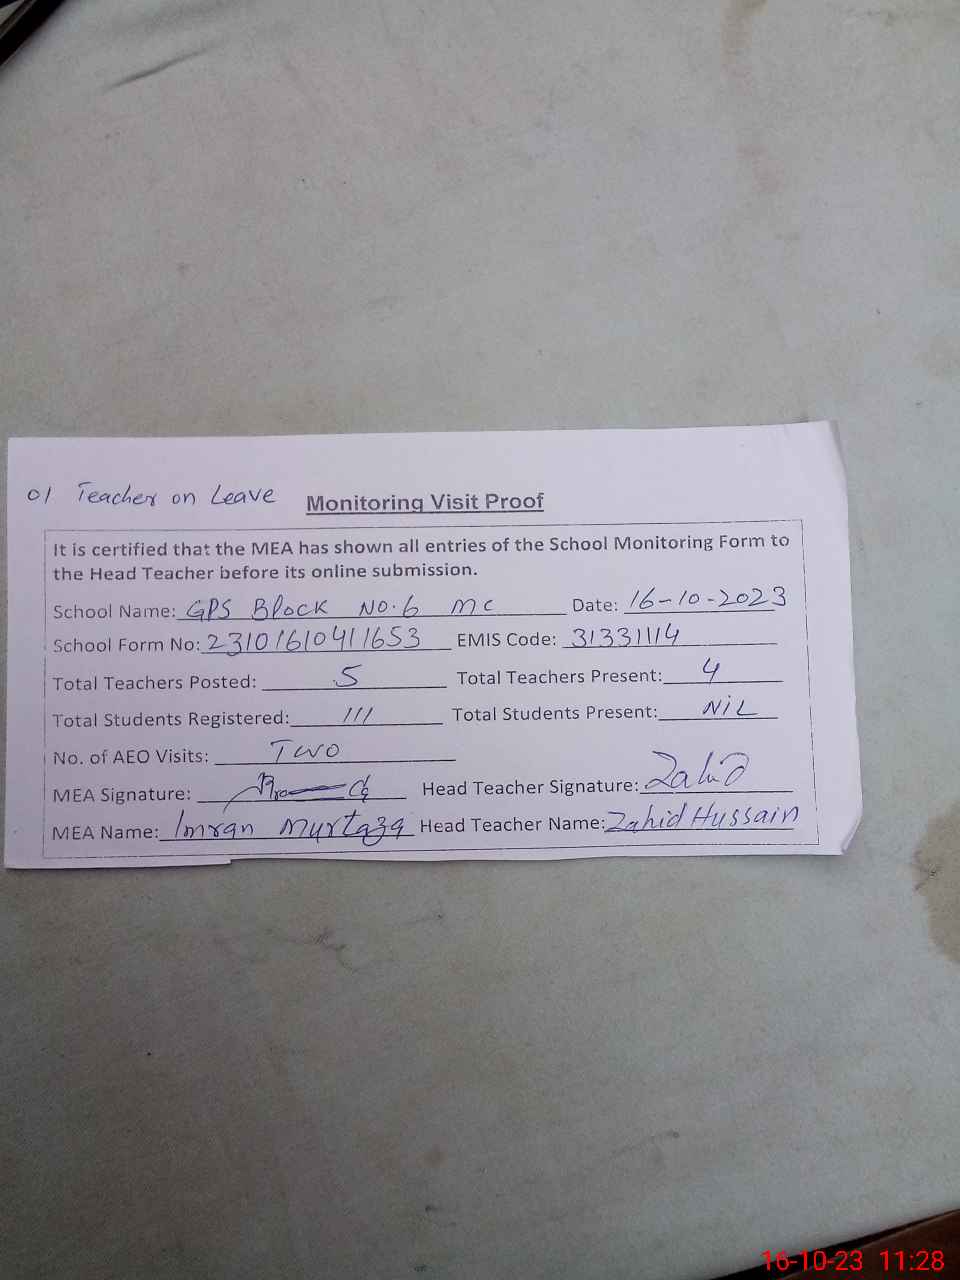 01 Teacher on Leave
Monitoring Visit Proof
It is certified that the MEA has shown all entries of the School Monitoring Form to
the Head Teacher before its online submission.
School Name: GPS Block No.6 MC Date: 16-10-2023
School Form No: 23101610411653 EMIS Code: 31331114
Total Teachers Posted: 5 Total Teachers Present: 4
Total Students Registered: 111 Total Students Present: NiL
No. of AEO Visits: Two
MEA Signature: Head Teacher Signature: Zahid
MEA Name: Imran Murtaza Head Teacher Name: Zahid Hussain
16-10-23 11:28